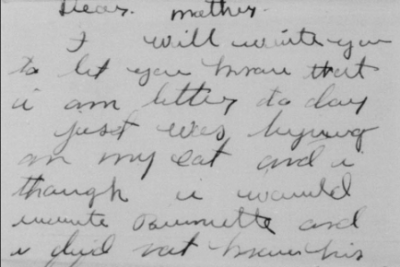 Dear. mother.
I will write you
to let you know that
i am better to day
just was lying
on my cot and i
though i would
write and
i did not know his